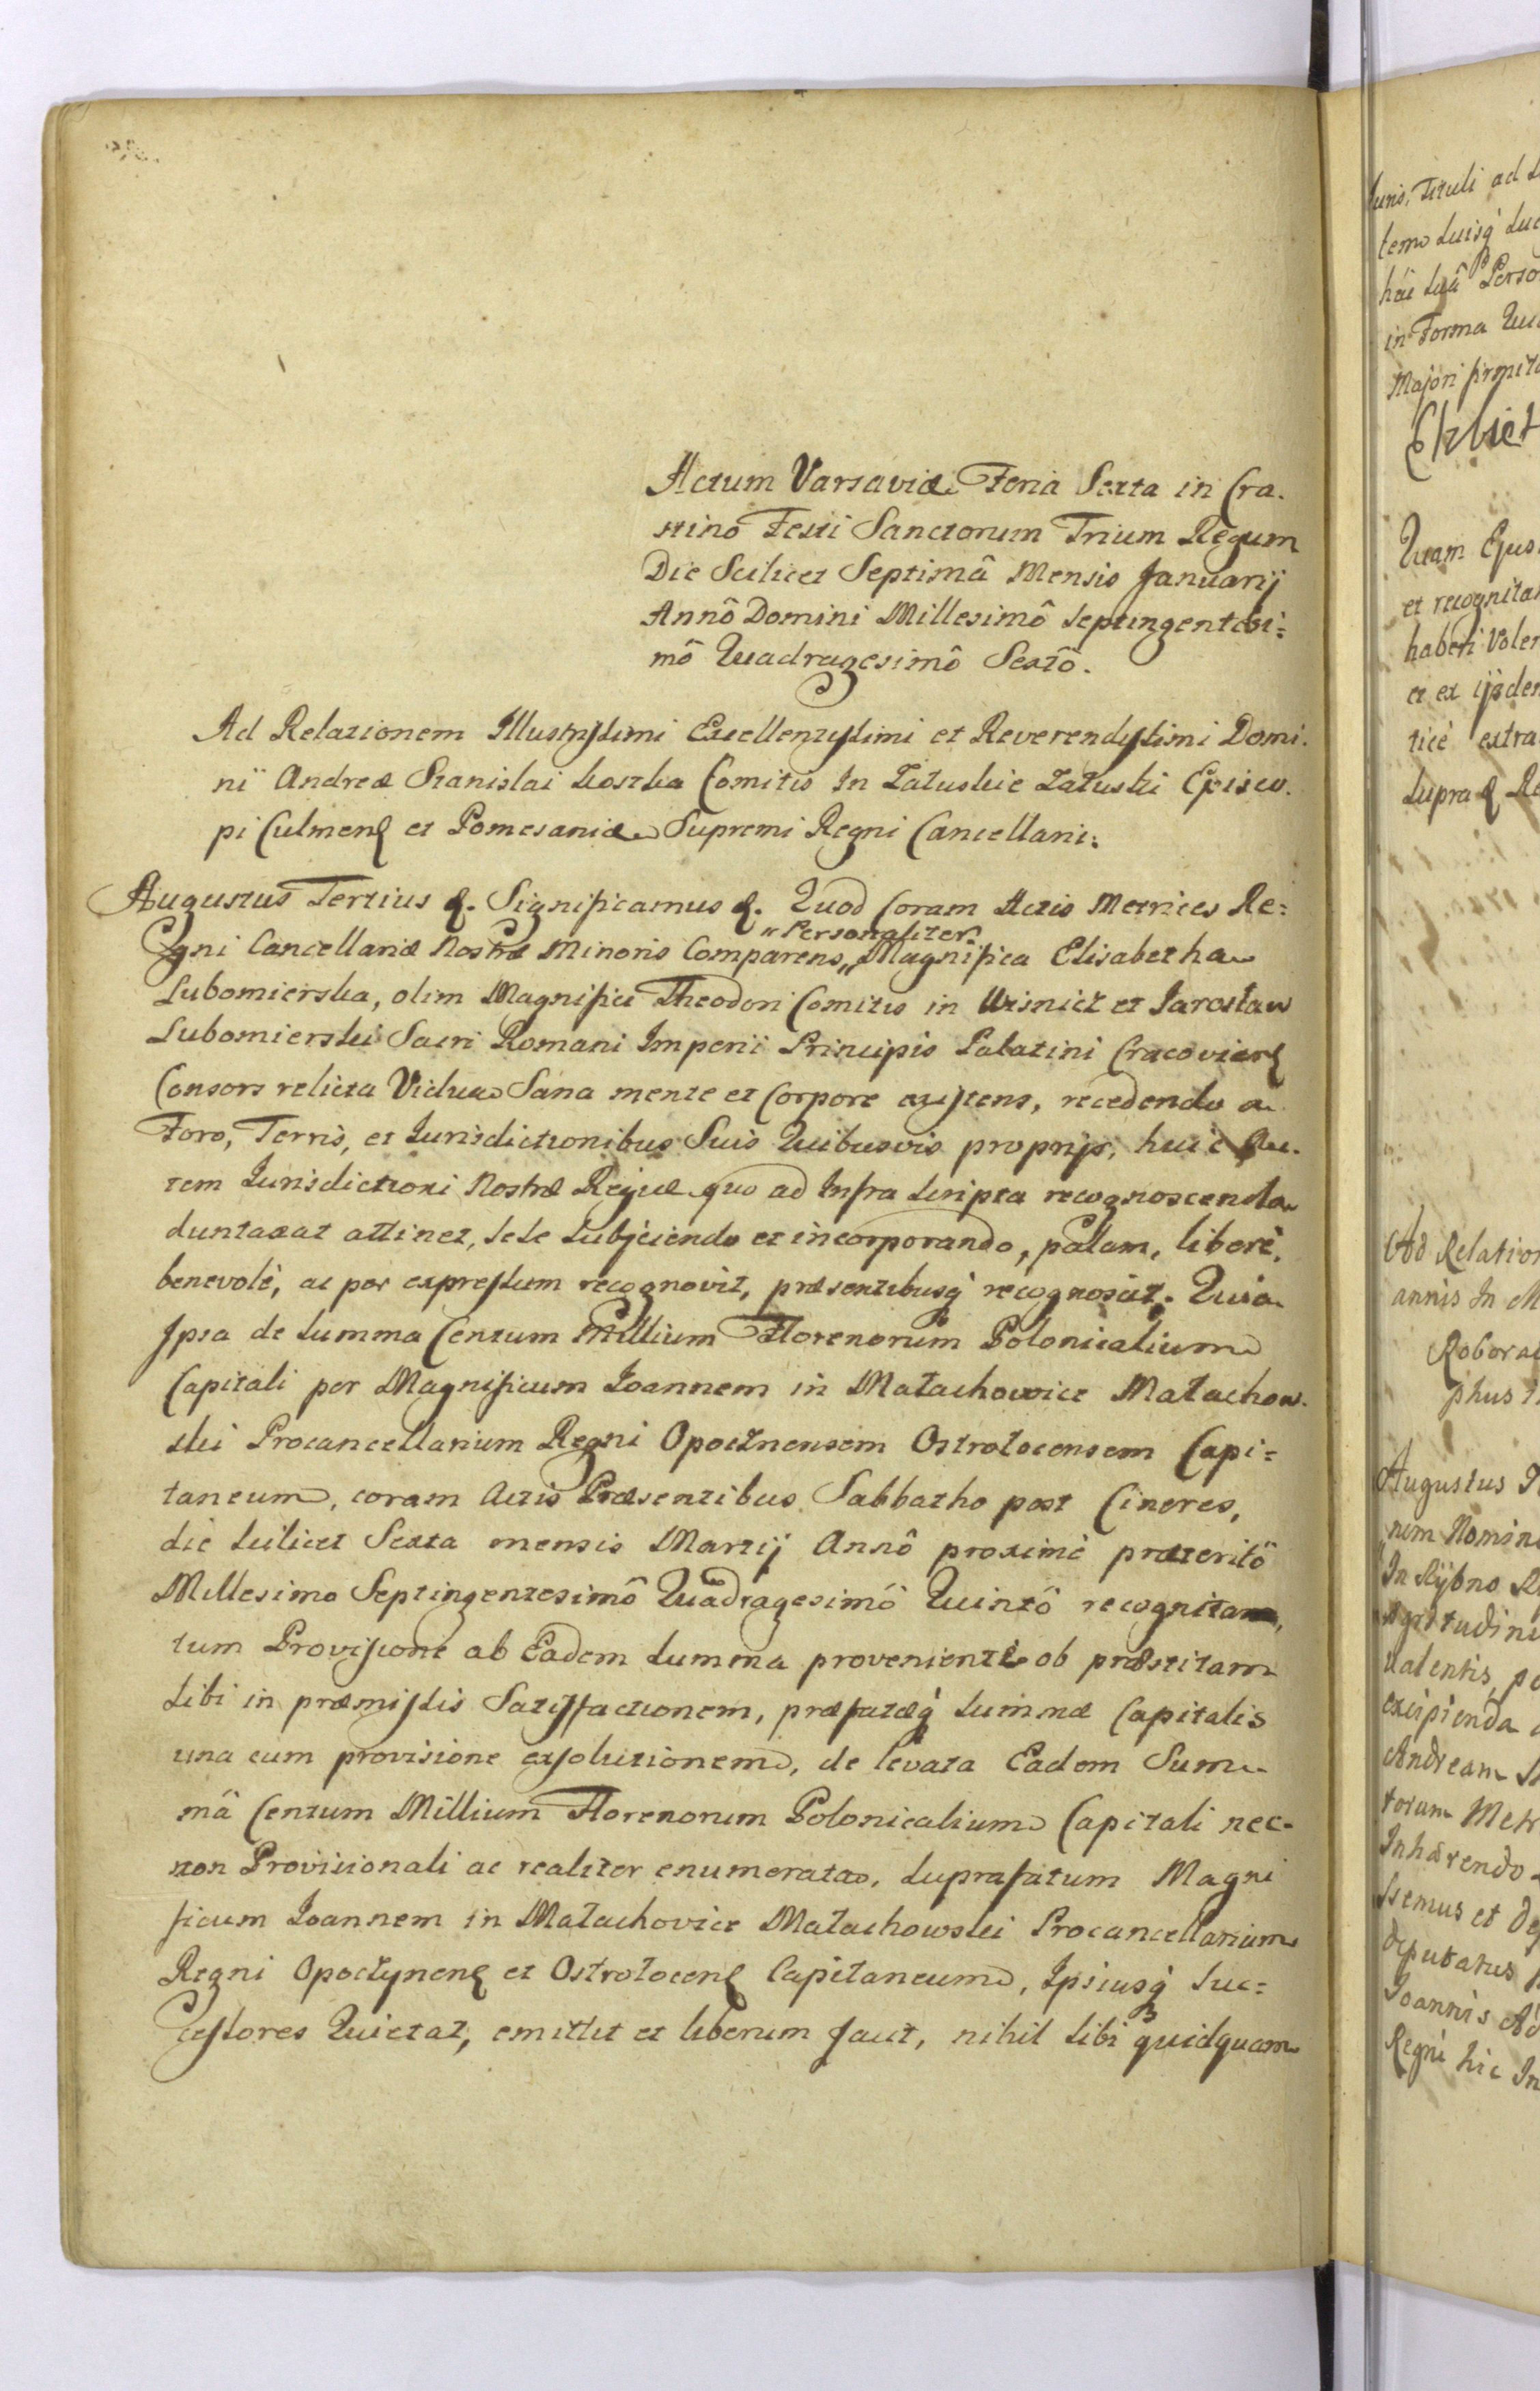 Actum Varsaviæ Feria Sexta in Cra.
stino Festi Sanctorum Trium Regum
Die Scilicet Septimâ Mensis Januarij
Annô Domini Millesimô Septingentesi=
mô Quadragesimô Sextô.
Ad Relationem Illustrissimi Excellentissimi et Reverendissimi Domi.
ni Andreæ Stanislai Kostka Comitis In Załuskie Załuski Episco.
pi Culmens et Pomesaniæ Supremi Regni Cancellarii.
Augustus Tertius &. Significamus &. Quod Coram Actis Metrices Re=
gni Cancellariæ Nostræ Minoris Comparens „Personaliter„ Magnifica Elisabetha
Lubomierska, olim Magnifici Theodori Comitis in Wisnicz et Jarosław
Lubomierski Sacri Romani Imperii Principis Palatini Cracoviens
Consors relicta Vidua Sana mente et Corpore existens, recedendo a
Foro, Terris, et Jurisdictionibus Suis Quibusvis proprijs, huic au.
tem Jurisdictioni Nostræ Regiæ quo ad Infra Scripta recognoscenda
duntaxat attinet, Sese Subjiciendo et incorporando, palam, liberè,
benevolè, ac per expressum recognovit, præsentibusq́ recognoscit. Quia
Ipsa de Summa Centum Millium Florenorum Polonicalium
Capitali per Magnificum Joannem in Małachowice Małachow.
ski Procancellarium Regni Opocznensem Ostrołecensem Capi=
taneum, coram Actis Præsentibus Sabbatho post Cineres,
die Scilicet Sexta mensis Martij Annô proximè præteritô
Millesimo Septingentesimô Quadragesimô Quintô recognitam,
tum Provisione ab Eadem Summa proveniente ob præstitam
Sibi in præmissis Satisfactionem, præfatæq́ Summæ Capitalis
una cum provisione exsolutionem, de levata Eadem Sum-
mâ Centum Millium Florenorum Polonicalium Capitali nec-
non Provisionali ac realiter enumerata, Suprafatum Magni
ficum Joannem in Małachovice Małachowski Procancellarium
Regni Opoczynens et Ostrołocens Capitaneum, Ipsiusq́ Suc=
cessores Quietat, emittit et liberum facit, nihil Sibi quidquam
Juris, Tituli ad
in Forma
Majori
Quam Ejus
et recognita
et ex ijsdem
extra
Supra & Re
Ad Relation
annis In M
Roborat
phus
Augustus
Andream
Inhærendo
Joannis
Regni hic In